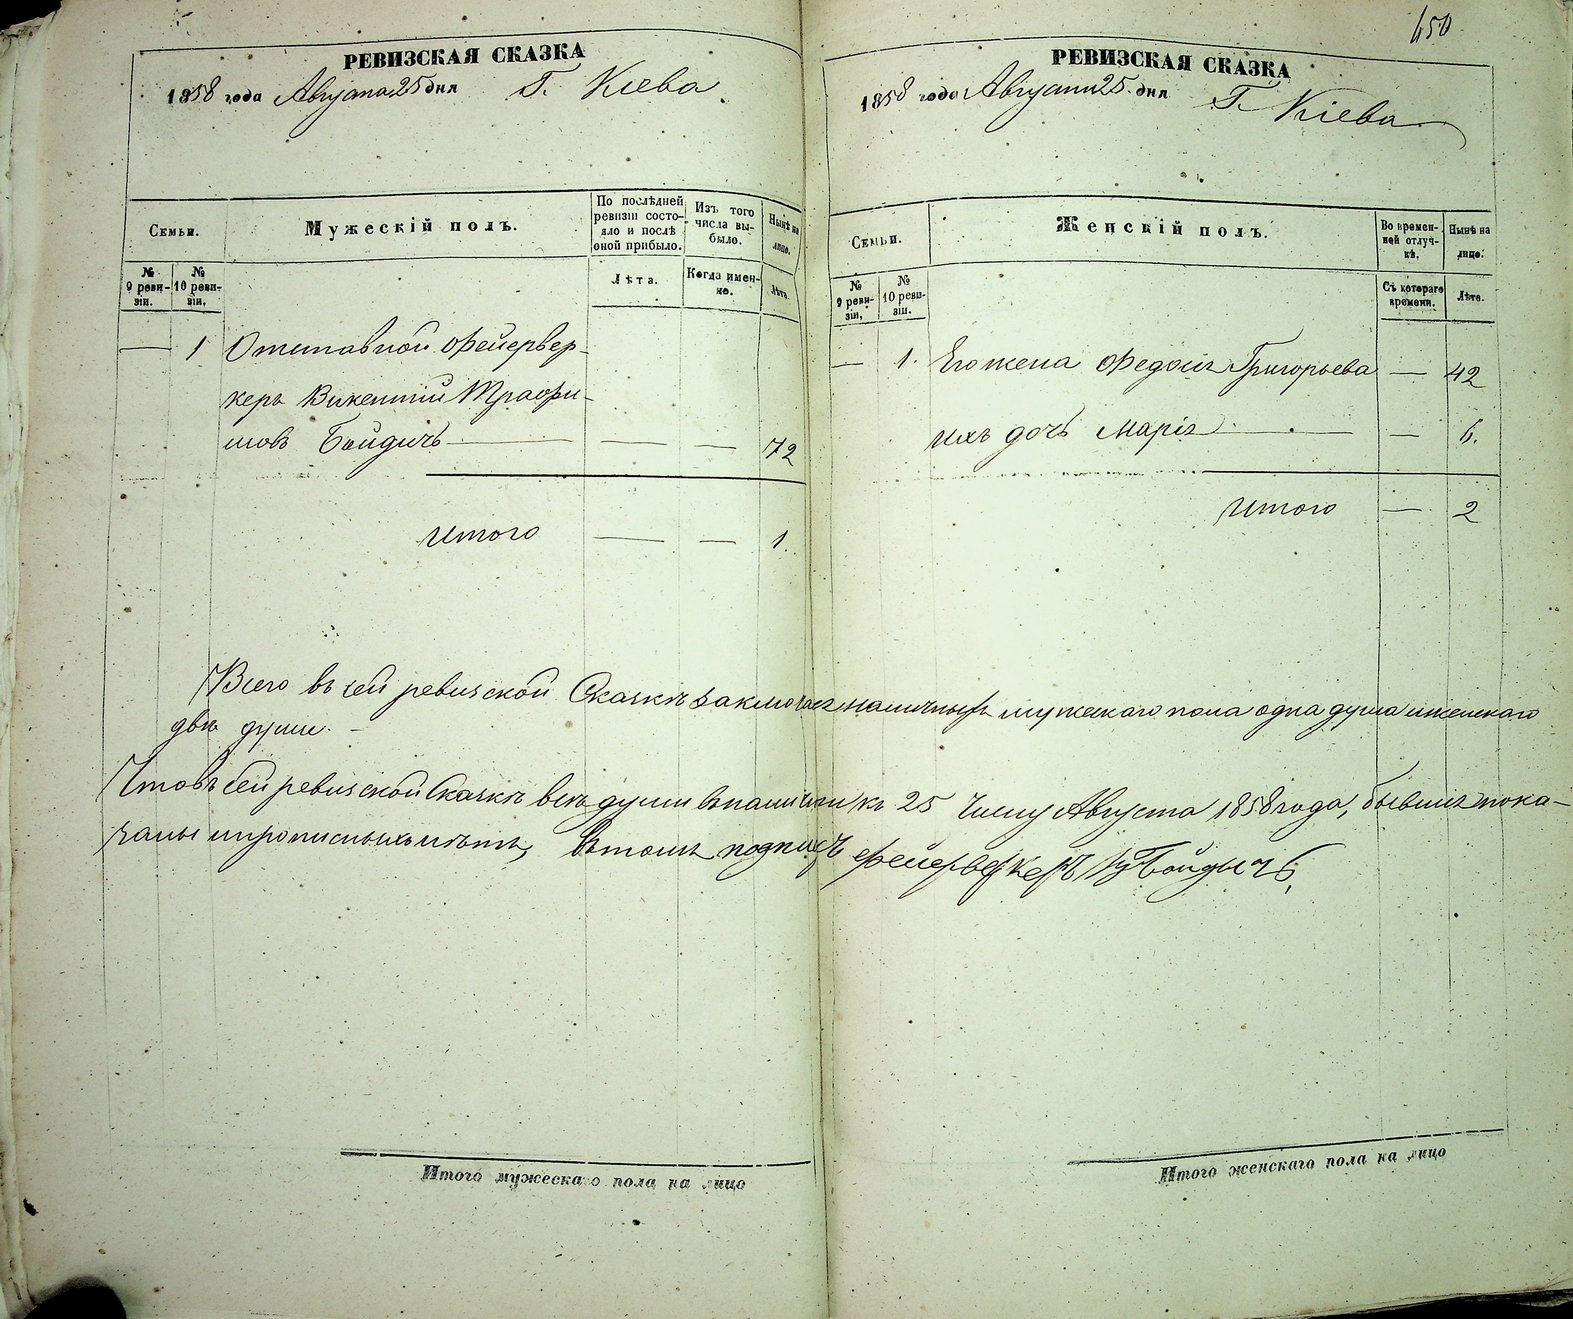 450
РЕВИЗСКАЯ СКАЗКА
1858 года Августа 25 дня Г. Кіева
Семьи.
Мужескій полъ.
По послѣдней ревизіи состояло и послѣ оной прибыло.
Изъ того числа выбыло.
Нынѣ на лицо.
№ 9 ревизіи.
№ 10 ревизіи.
Лѣта.
Когда именно.
Лѣта.
— 1 Отставной Фейервер-
керъ Викентій Трофи-
мовъ Бойдичъ — — — 72
Итого — — 1.
РЕВИЗСКАЯ СКАЗКА
1858 года Августа 25 дня Г. Кіева
Семьи.
Женскій полъ.
Во временной отлучкѣ.
Нынѣ на лицо.
№ 9 ревизіи.
№ 10 ревизіи.
Съ котораго времени.
Лѣта.
— 1. Его жена Федосія Григорьева — 42
ихъ дочь Марія — — 6.
Итого — 2
Всего въ сей ревизской Сказкѣ наличныхъ мужескаго пола одна душа и женскаго
двѣ души. —
Что въ сей ревизской Сказкѣ всѣ души къ 25 числу Августа 1858 года, бывшія пока-
заны и прописныхъ нѣтъ, въ томъ Фейерверкеръ Бойдычъ
Итого мужескаго пола на лицо
Итого женскаго пола на лицо